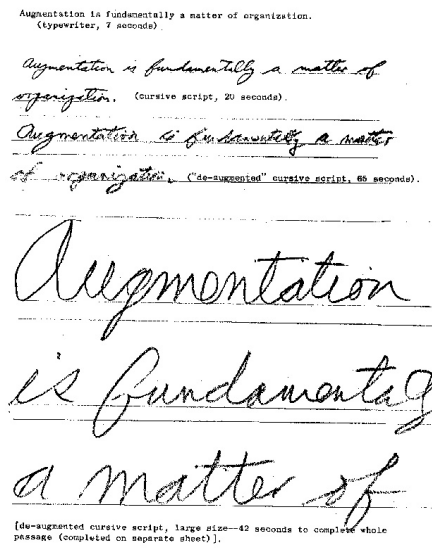 Augmentation is fundamentally a matter of organization.
(typewriter, 7 seconds).
Augmentation is fundamentally a matter of
organization. (cursive script, 20 seconds).
Augmentation is fundamentally a matter
of organization. ("de-augmented" cursive script, 65 seconds).
Augmentation
is fundamentally
a matter of
[de-augmented cursive script, large size--42 seconds to complete whole
passage (completed on separate sheet)].